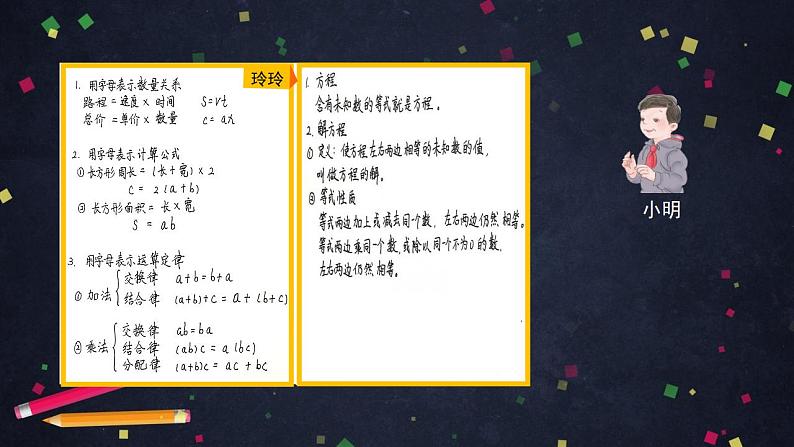 玲玲
1. 用字母表示数量关系
路程=速度×时间 S=vt
总价=单价×数量 c=an
2. 用字母表示计算公式
①长方形周长=(长+宽)×2
C = 2(a+b)
②长方形面积=长×宽
S = ab
3. 用字母表示运算定律
①加法
交换律 a+b=b+a
结合律 (a+b)+c=a+(b+c)
②乘法
交换律 ab=ba
结合律 (ab)c=a(bc)
分配律 (a+b)c=ac+bc
1. 方程
含有未知数的等式就是方程。
2. 解方程
①定义:使方程左右两边相等的未知数的值,
叫做方程的解。
②等式性质
等式两边加上或减去同一个数,左右两边仍然相等。
等式两边乘同一个数,或除以同一个不为0的数,
左右两边仍然相等。
小明